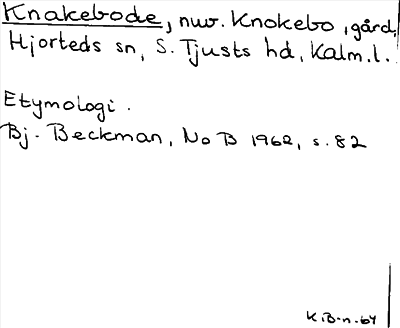 Knakebode, nuv. Knokebo, gård,
Hjorteds sn, S. Tjusts hd, Kalm.l.
Etymologi.
Bj. Beckman, NoB 1962, s. 82
K.B-n-64